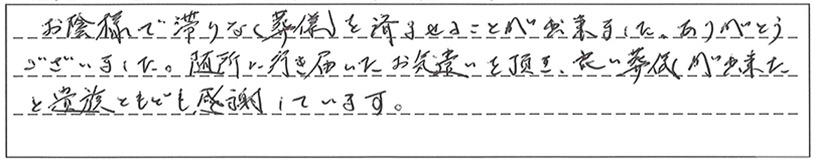 お陰様で滞りなく葬儀を済ませることが出来ました。ありがとう
ございました。随所に行き届いたお気遣いを頂き、良い葬儀が出来た
と遺族ともども感謝しています。